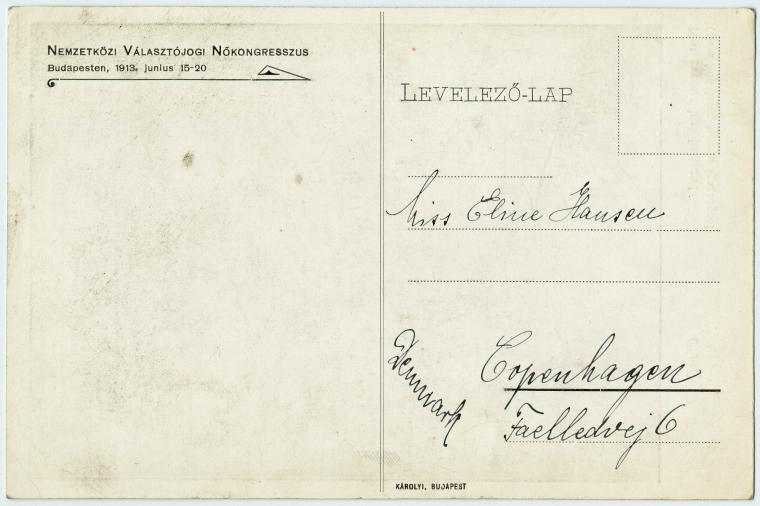 NEMZETKÖZI VÁLASZTÓJOGI NŐKONGRESSZUS
Budapesten, 1913. junius 15-20
LEVELEZŐ-LAP
Miss Eline Hansen
Denmark
Copenhagen
Faelledvej 6
KÁROLYI, BUDAPEST